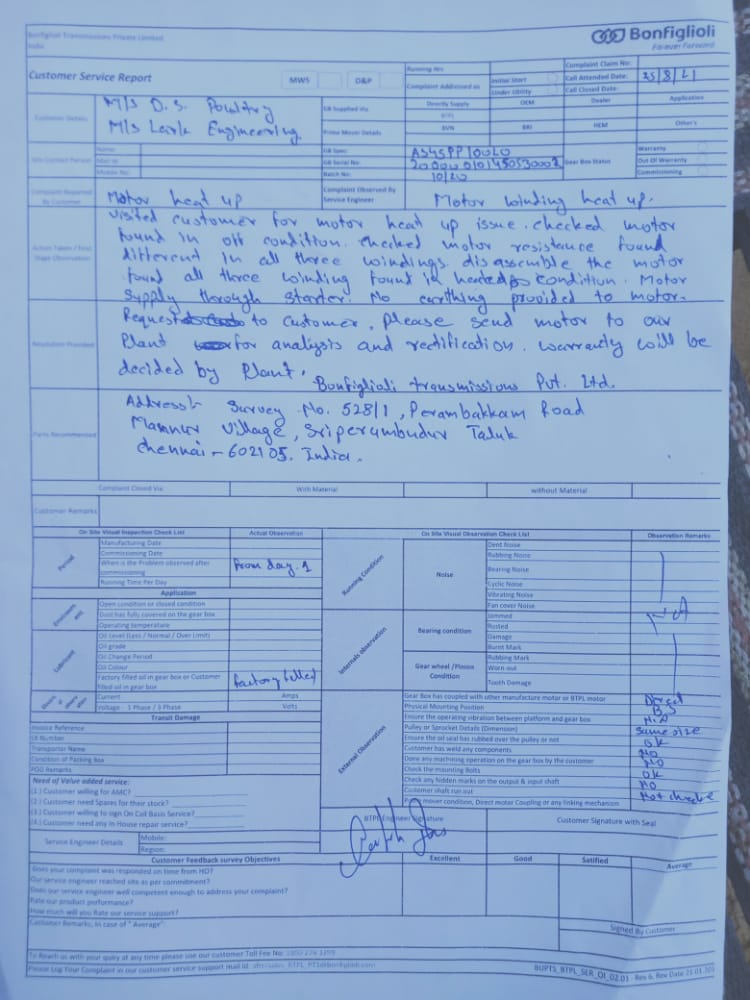 Bonfiglioli Transmissions Private Limited
India
Bonfiglioli
Forever Forward
Customer Service Report
MWS
D&P
Running Hrs
Complaint Addressed as
Initial Start
Under Utility
Complaint Claim No:
Call Attended Date: 25/8/21
Call Closed Date:
Customer Details
M/s D.S. Poultry
M/s Lark Engineering
GB Supplied Via
Prime Mover Details
Directly Supply
OEM
Dealer
Application
BTPL
BVN
BRI
HEM
Other's
Site Contact Person
Name:
Mail Id
Mobile No:
GB Spec:
GB Serial No:
Batch No:
10/20
Gear Box Status
Warranty
Out Of Warranty
Commissioning
Complaint Reported By Customer
Motor heat up
Complaint Observed By Service Engineer
Motor winding heat up.
Action Taken / First Stage Observation
Visited customer for motor heat up issue. checked motor
found in off condition. checked motor resistance found
different in all three windings. disassemble the motor
found all three winding found in heated condition. Motor
Supply thorugh starter. No earthing provided to motor.
Resolution Provided
Request to customer, please send motor to our
Plant for analysis and rectification. warranty will be
decided by plant.
Bonfiglioli transmissions Pvt. Ltd.
Parts Recommended
Address:- Survey No. 528/1, Perambakkam Road
Mannur Village, Sriperumbudur Taluk
Chennai - 602105. India.
Complaint Closed Via:
With Material
without Material
Customer Remarks
On Site Visual Inspection Check List
Actual Observation
On Site Visual Observation Check List
Observation Remarks
Period
Manufacturing Date
Commissioning Date
When is the Problem observed after commissioning
From day. 1
Running Time Per Day
Application
Open condition or closed condition
Dust has fully covered on the gear box
Operating temperature
Lubricant
Oil Level (Less / Normal / Over Limit)
Oil grade
Oil Change Period
Oil Colour
Factory filled oil in gear box or Customer filled oil in gear box
factory filled
Current
Amps
Voltage - 1 Phase / 3 Phase
Volts
Transit Damage
Invoice Reference
LR Number
Transporter Name
Condition of Packing Box
POD Remarks
Running Condition
Noise
Dent Noise
Rubbing Noise
Bearing Noise
Cyclic Noise
Vibrating Noise
Fan cover Noise
NA
Internals observation
Bearing condition
Jammed
Rusted
Damage
Burnt Mark
Gear wheel /Pinion Condition
Rubbing Mark
Worn out
Tooth Damage
External Observation
Gear Box has coupled with other manufacture motor or BTPL motor
Direct
Physical Mounting Position
B5
Ensure the operating vibration between platform and gear box
N.A
Pulley or Sprocket Details (Dimension)
Same size
Ensure the oil seal has rubbed over the pulley or not
ok
Customer has weld any components
No
Done any machining operation on the gear box by the customer
No
Check the mounting Bolts
ok
Check any hidden marks on the output & input shaft
No
Customer shaft run out
Not checke
Prime mover condition, Direct motor Coupling or any linking mechanism
Need of Value added service:
(1.) Customer willing for AMC?
(2.) Customer need Spares for their stock?
(3.) Customer willing to sign On Call Basis Service?
(4.) Customer need any In House repair service?
Service Engineer Details
Mobile:
Region:
BTPL Engineer Signature
Customer Signature with Seal
Customer Feedback survey Objectives
Excellent
Good
Satified
Average
Does your complaint was responded on time from HO?
Our service engineer reached site as per commitment?
Does our service engineer well competent enough to address your complaint?
Rate our product performance?
How much will you Rate our service support?
Customer Remarks, in case of " Average":
Signed By Customer
To Reach us with your query at any time please use our customer Toll Fee No:
Please Log Your Complaint in our customer service support mail id